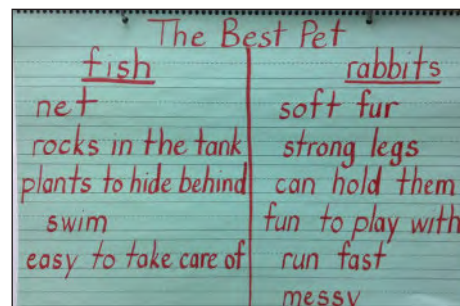 The Best Pet
fish
net
rocks in the tank
plants to hide behind
swim
easy to take care of
rabbits
soft fur
strong legs
can hold them
fun to play with
run fast
messy